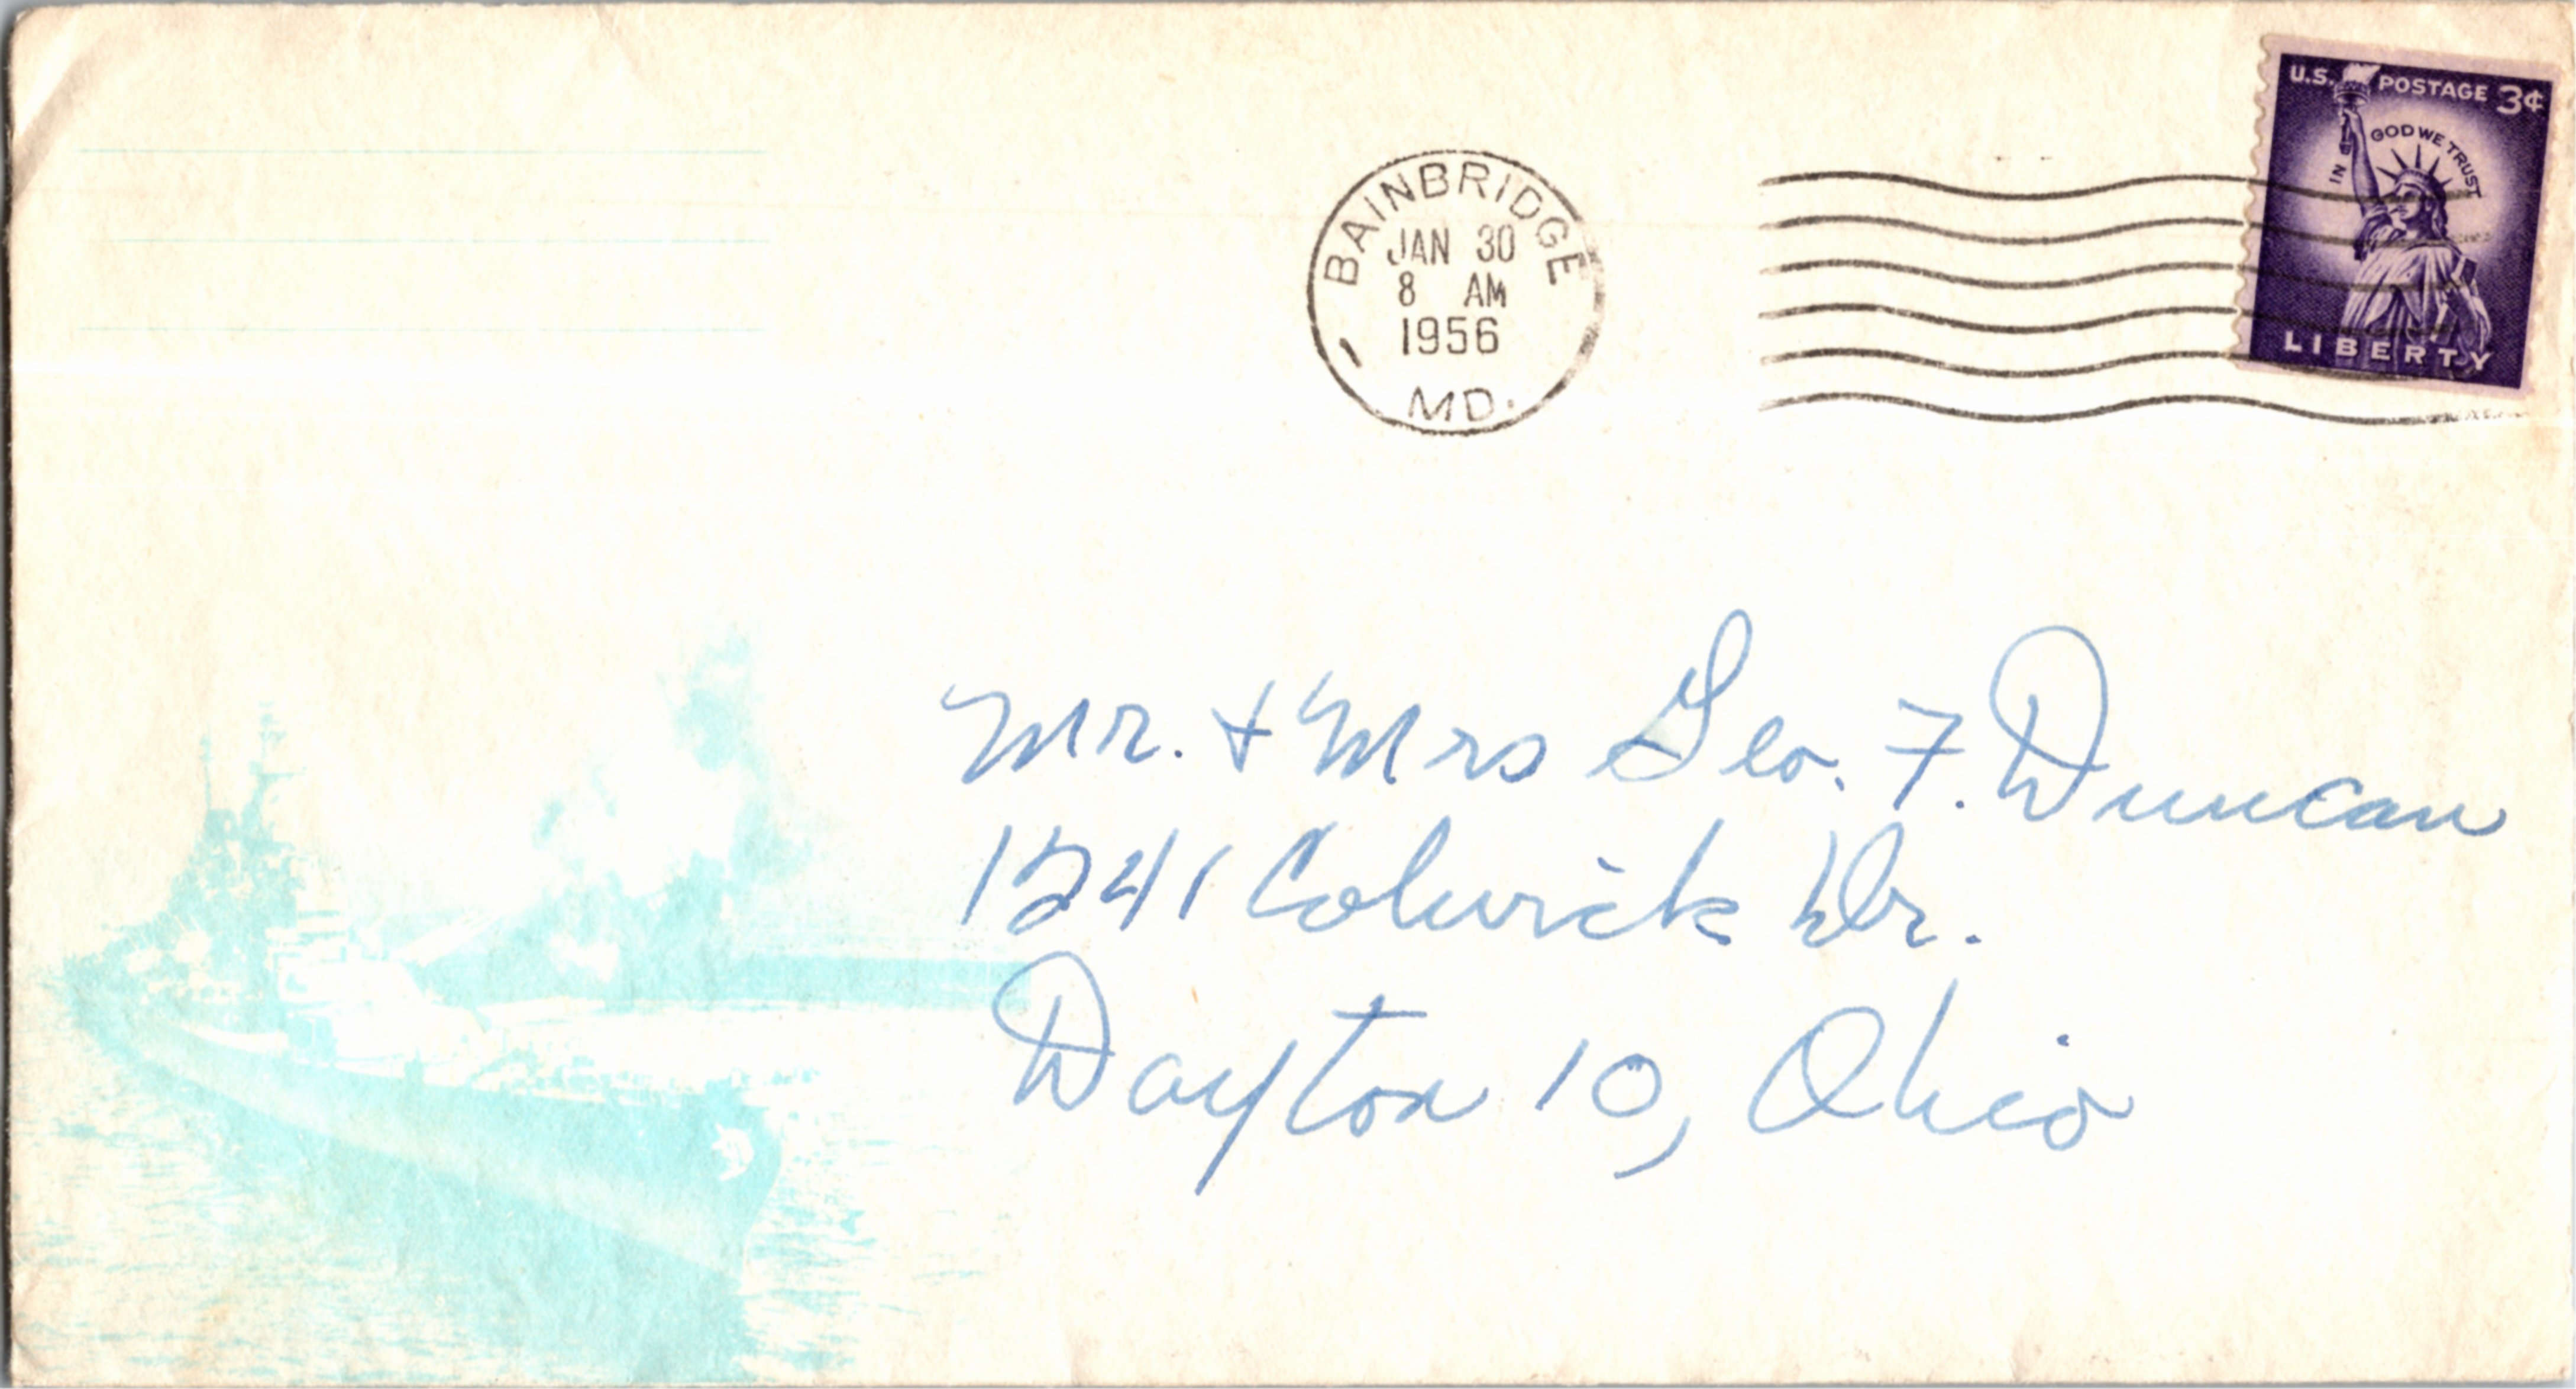 U.S. POSTAGE 3¢
IN GOD WE TRUST
LIBERTY
BAINBRIDGE
JAN 30
8 AM
1956
MD.
Mr. + Mrs Geo. F. Duncan
1241 Colwick Dr.
Dayton 10, Ohio